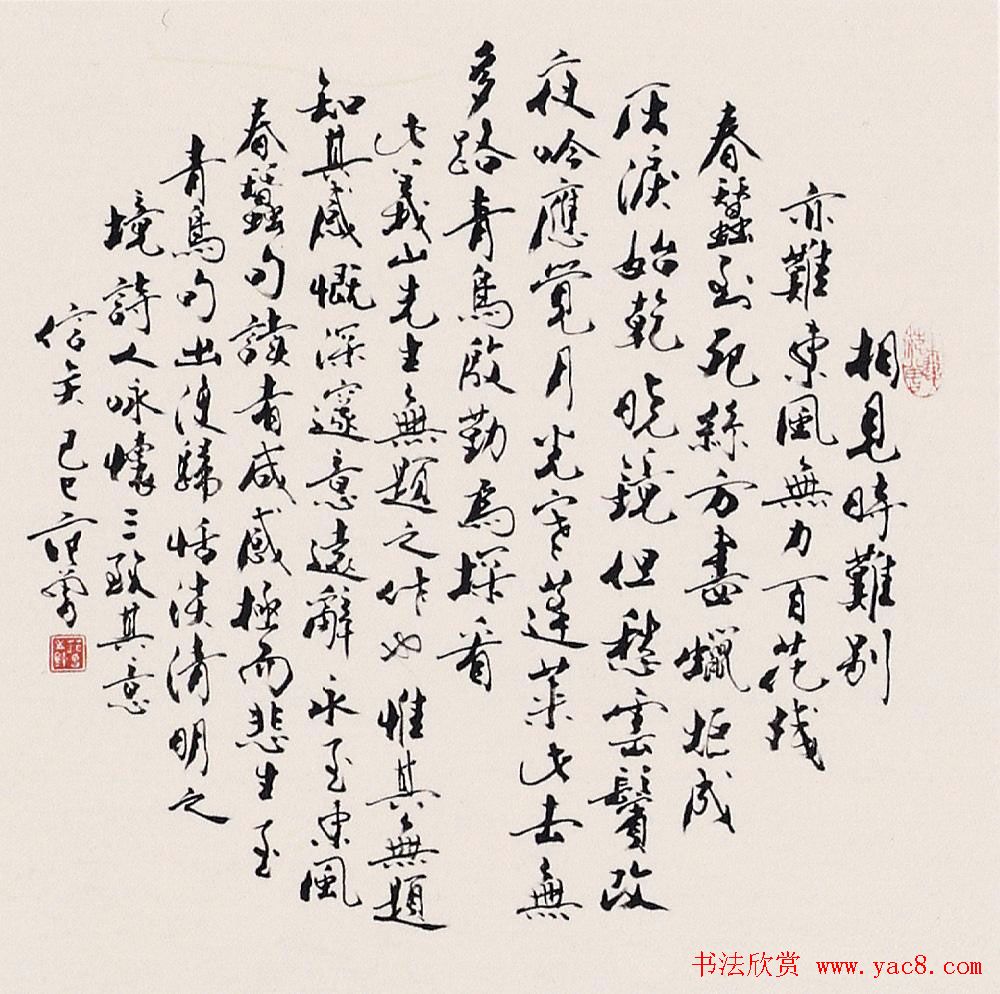 相見時難別
亦難東風無力百花残
春蠶至死絲方盡蠟炬成
灰淚始乾曉鏡但愁雲鬢改
夜吟應覺月光寒蓬萊此去無
多路青鳥殷勤為探看
此義山先生無題之作也惟其無題
知其感慨深邃意遠辭永至東風
春蠶句讀者咸感極而悲生至
青鳥句出便歸恬淡清明之
境詩人咏懷三致其意
信矣己巳范曾
书法欣赏 www.yac8.com